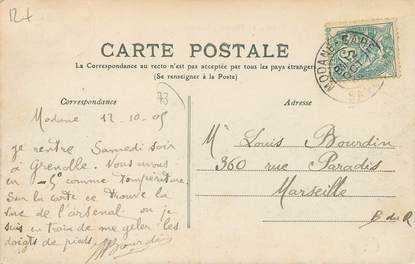 CARTE POSTALE
La Correspondance au recto n'est pas acceptée par tous les pays étrangers
(Se renseigner à la Poste)
Correspondance
Adresse
73
Modane 12-10-05
je rentre Samedi soir
à Grenoble. Nous avons
eu -5° comme température.
Sur la carte ce trouve la
rue de l'arsenal ou je
suis en train de me geler les
doigts de pieds
Bourdin
Mr Louis Bourdin
360 rue Paradis
Marseille
B du R
MODANE